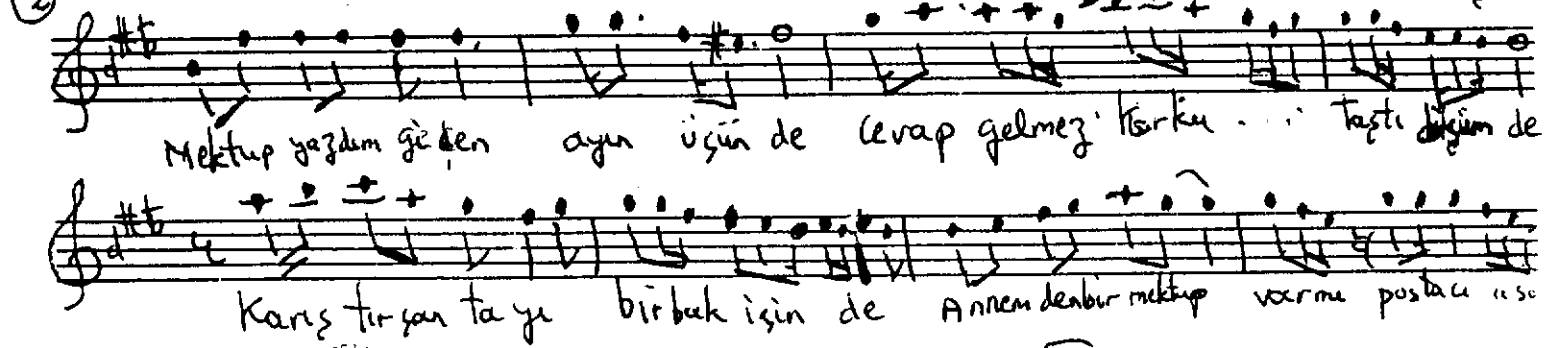 2
Mektup yazdım geçen ayın üçün de Cevap gelmez Korku . . . taştı içim de
Karış tır şan ta yı bir bak için de Annem den bir mektup var mı postacı